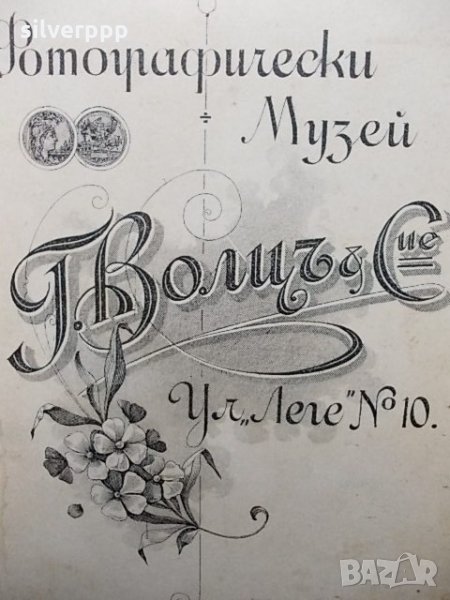 silverppp
Фотографически
Музей
Г. Волцъ & Сие
Ул. „Леге” № 10.
BAZAR